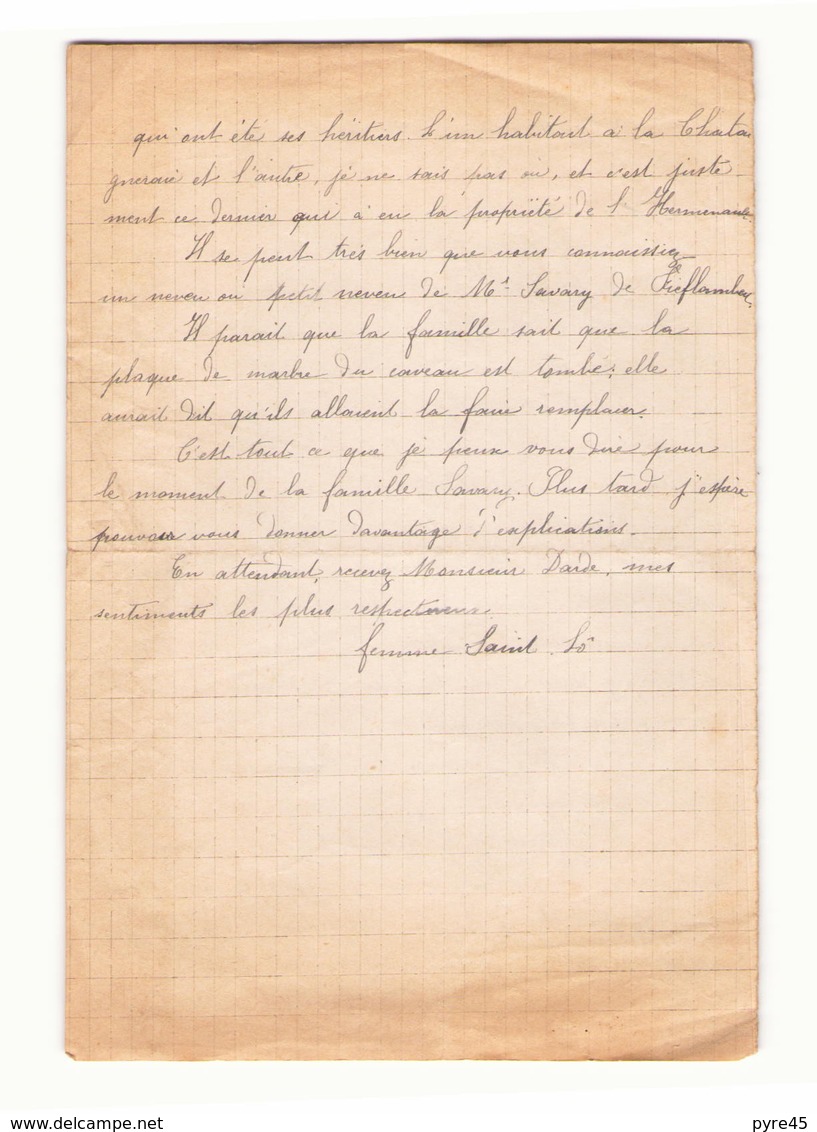 qui ont été ses héritiers. L'un habitant à la Chatai
gneraie et l'autre, je ne sais pas où, et c'est juste
ment ce dernier qui a eu la propriété de l'Hermenault.
Il se peut très bien que vous connaissiez
un neveu ou petit neveu de Mr Savary de Fieflambert.
Il parait que la famille sait que la
plaque de marbre du caveau est tombé; elle
aurait dit qu'ils allaient la faire remplacer.
C'est tout ce que je peux vous dire pour
le moment de la famille Savary. Plus tard j'espère
pouvoir vous donner davantage d'explications.
En attendant, recevez Monsieur Darde, mes
sentiments les plus respectueux.
femme Saint Lô
www.delcampe.net
pyre45